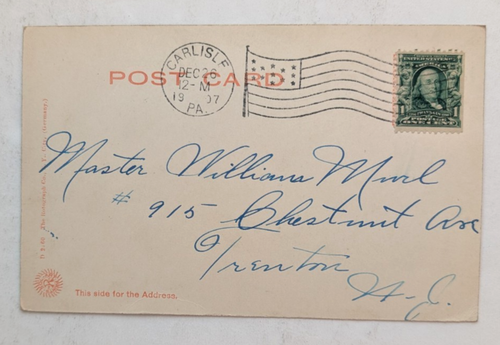 CARLISLE
DEC 26
12-M
1907
PA.
POST CARD
1
Master William
# 915 Chestnut Ave
Trenton
N.J.
This side for the Address.